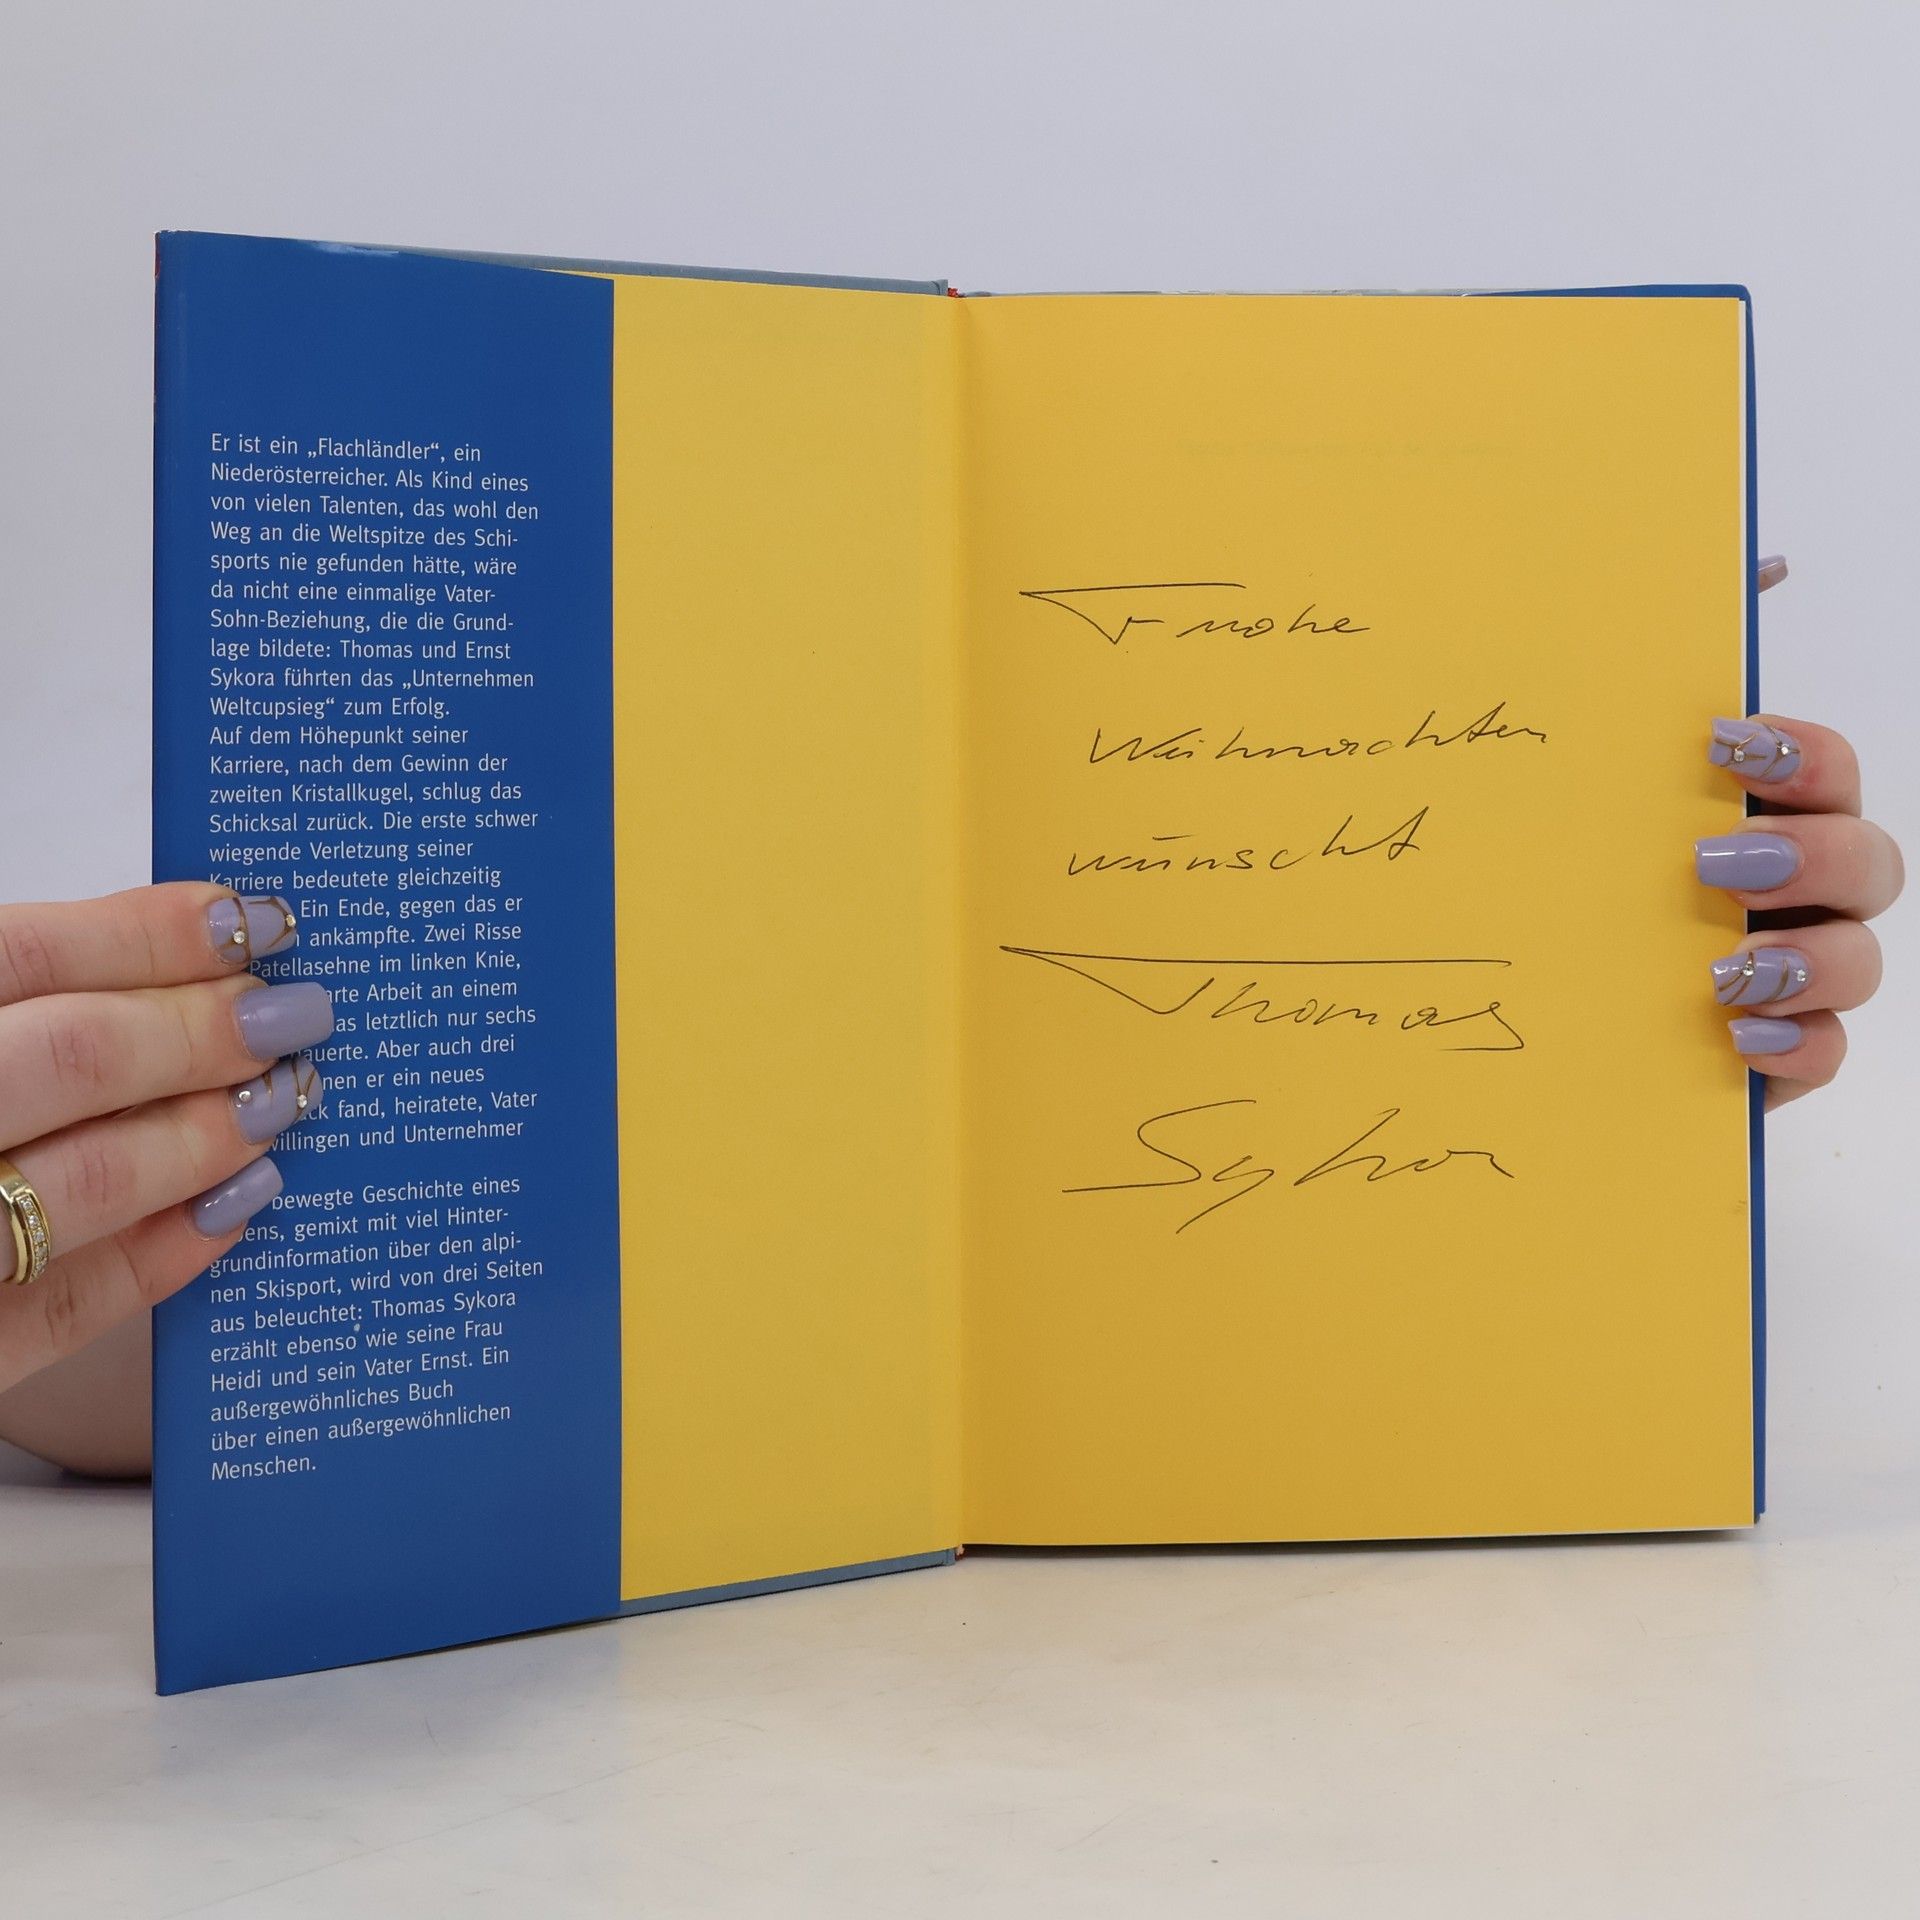 Er ist ein „Flachländler“, ein
Niederösterreicher. Als Kind eines
von vielen Talenten, das wohl den
Weg an die Weltspitze des Schi-
sports nie gefunden hätte, wäre
da nicht eine einmalige Vater-
Sohn-Beziehung, die die Grund-
lage bildete: Thomas und Ernst
Sykora führten das „Unternehmen
Weltcupsieg“ zum Erfolg.
Auf dem Höhepunkt seiner
Karriere, nach dem Gewinn der
zweiten Kristallkugel, schlug das
Schicksal zurück. Die erste schwer
wiegende Verletzung seiner
Karriere bedeutete gleichzeitig
Ein Ende, gegen das er
ankämpfte. Zwei Risse
Patellasehne im linken Knie,
Arbeit an einem
letztlich nur sechs
Aber auch drei
er ein neues
fand, heiratete, Vater
und Unternehmer
bewegte Geschichte eines
gemixt mit viel Hinter-
grundinformation über den alpi-
nen Skisport, wird von drei Seiten
aus beleuchtet: Thomas Sykora
erzählt ebenso wie seine Frau
Heidi und sein Vater Ernst. Ein
außergewöhnliches Buch
über einen außergewöhnlichen
Menschen.
Frohe
Weihnachten
wünscht
Thomas
Sykora